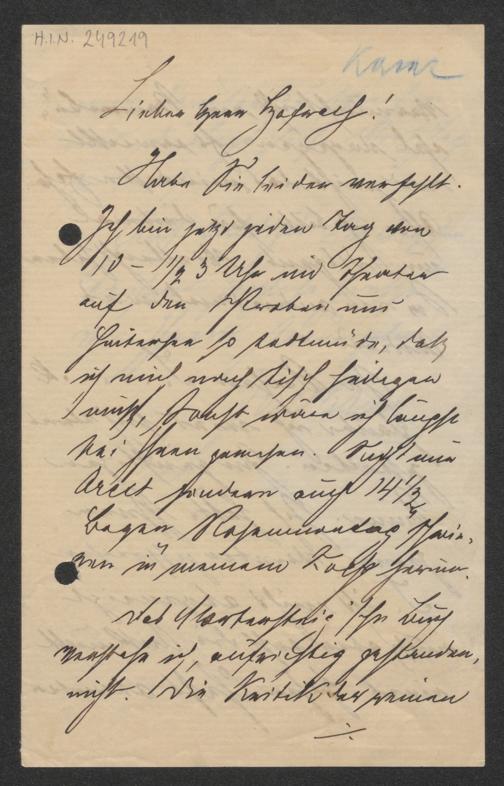 H.I.N. 249219
Kainz
Lieber Herr Hofrath!
Habe Sie leider verfehlt.
Ich bin jetzt jeden Tag von
10 – 1/2 3 Uhr im Theater
auf den Proben und
hinterher so todtmüde, daß
ich mich nach Tisch hinlegen
muß, sonst wäre ich längst
bei Ihnen gewesen. Nicht nur
sondern auch 14 1/2
Bogen Rosenmontag schwir-
ren in meinem Kopf herum.
Des Martersteig Buch
verstehe ich, aufrichtig gestanden,
nicht. Die Kritik der reinen
./.